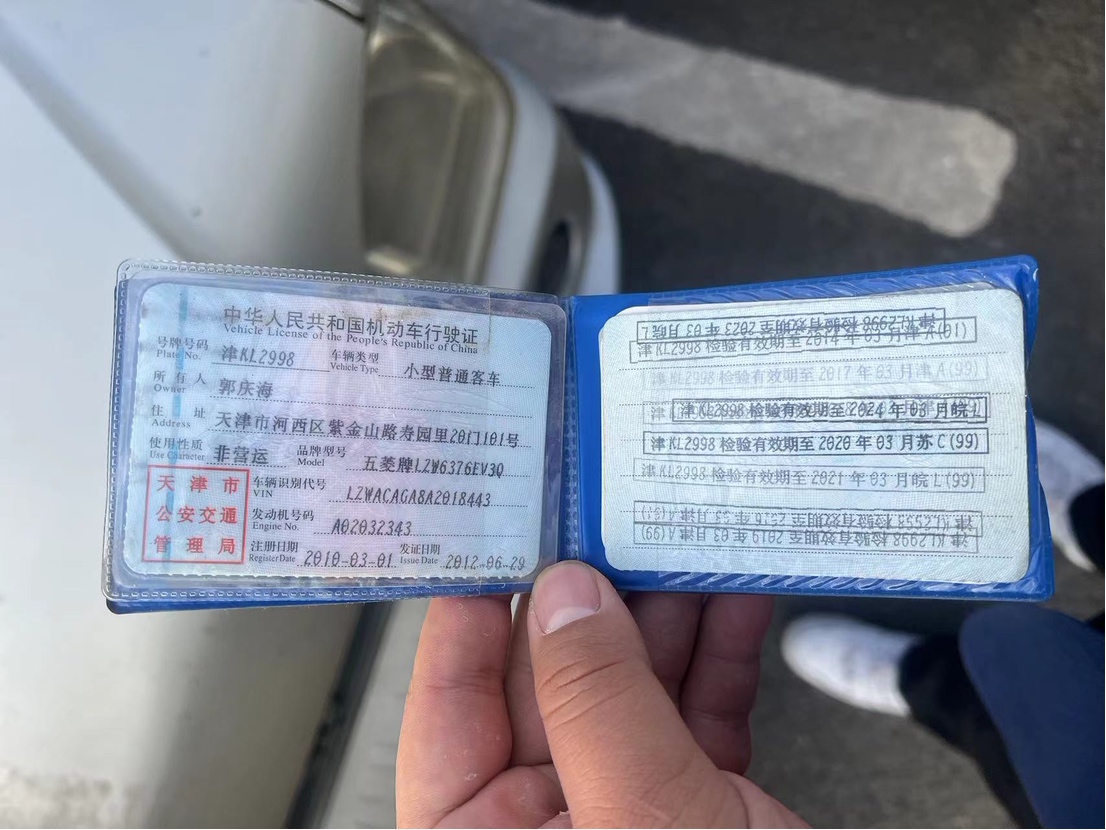 中华人民共和国机动车行驶证
Vehicle License of the People's Republic of China
号牌号码 津KL2998 车辆类型 小型普通客车
Plate No. Vehicle Type
所有人 郭庆海
Owner
住址 天津市河西区紫金山路寿园里20门101号
Address
使用性质 非营运 品牌型号 五菱牌LZW6376EV3Q
Use Character Model
天津市
公安交通
管理局
车辆识别代号 LZWACAGA8A2018443
VIN
发动机号码 A02032343
Engine No.
注册日期 2010-03-01 发证日期 2012-06-29
Register Date Issue Date
津KL2998检验有效期至2023年03月皖L
津KL2998检验有效期至2014年03月津A(01)
津KL2998检验有效期至2017年03月津A(99)
津KL2998检验有效期至2024年03月皖L
津KL2998检验有效期至2020年03月苏C(99)
津KL2998检验有效期至2021年03月皖L(99)
津KL2998检验有效期至2019年03月津A(99)